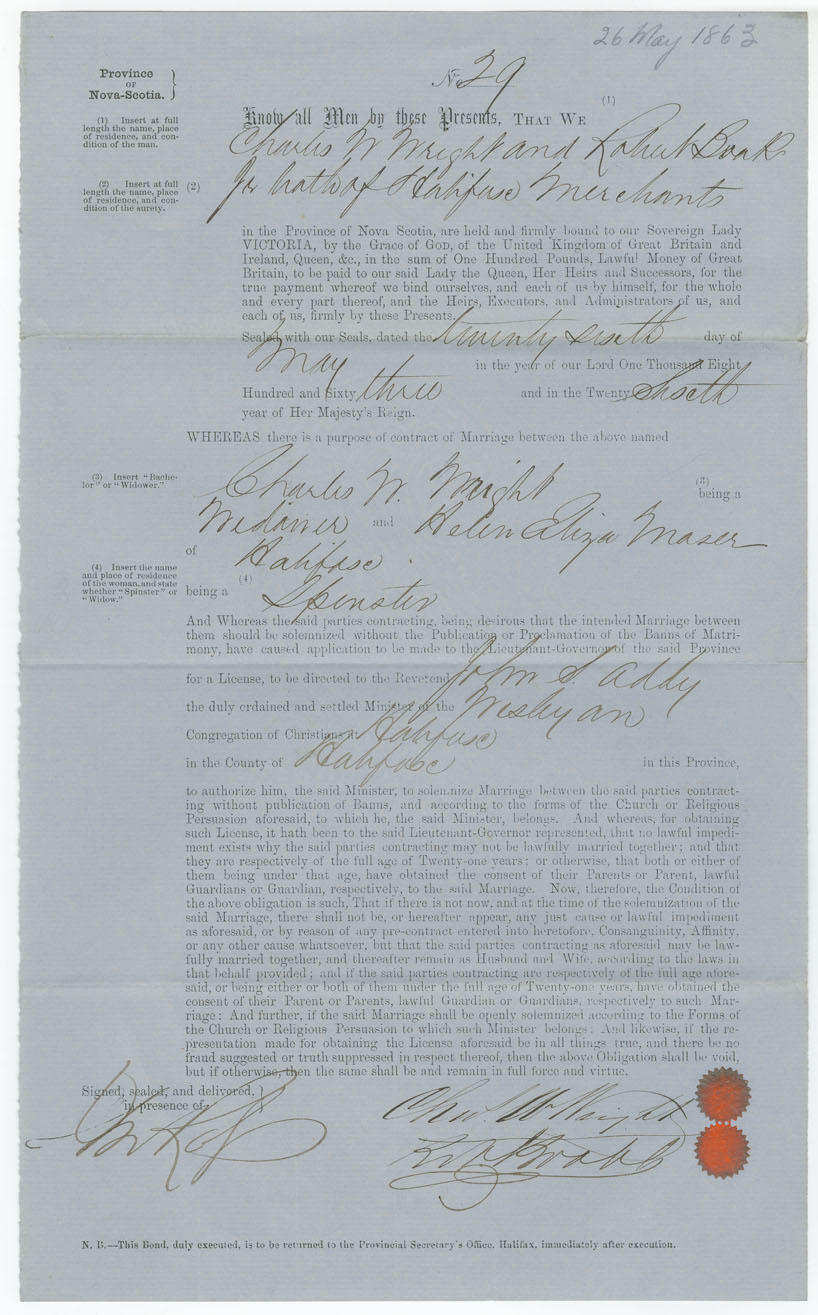 26 May 1863
Province
OF
Nova-Scotia.
No 29
(1)
Know all Men by these Presents, THAT WE
(1) Insert at full
length the name, place
of residence, and con-
dition of the man.
Charles W Wright and Robert Boak
(2) Insert at full
length the name, place
of residence, and con-
dition of the surety.
(2)
Jr both of Halifax Merchants
in the Province of Nova Scotia, are held and firmly bound to our Sovereign Lady
VICTORIA, by the Grace of GOD, of the United Kingdom of Great Britain and
Ireland, Queen, &c., in the sum of One Hundred Pounds, Lawful Money of Great
Britain, to be paid to our said Lady the Queen, Her Heirs and Successors, for the
true payment whereof we bind ourselves, and each of us by himself, for the whole
and every part thereof, and the Heirs, Executors, and Administrators of us, and
each of us, firmly by these Presents.
Sealed with our Seals, dated the twenty sixth day of
May in the year of our Lord One Thousand Eight
Hundred and Sixty three and in the Twenty Sixth
year of Her Majesty's Reign.
WHEREAS there is a purpose of contract of Marriage between the above named
(3) Insert "Bache-
lor" or "Widower."
Charles W. Wright (3) being a
Widower and Helen Eliza Maser
of Halifax.
(4) Insert the name
and place of residence
of the woman, and state
whether "Spinster" or
"Widow."
(4)
being a Spinster
And Whereas the said parties contracting, being desirous that the intended Marriage between
them should be solemnized without the Publication or Proclamation of the Banns of Matri-
mony, have caused application to be made to the Lieutenant-Governor of the said Province
for a License, to be directed to the Reverend John S. Addy
the duly ordained and settled Minister of the Wesleyan
Congregation of Christians at Halifax
in the County of Halifax in this Province,
to authorize him, the said Minister, to solemnize Marriage between the said parties contract-
ing without publication of Banns, and according to the forms of the Church or Religious
Persuasion aforesaid, to which he, the said Minister, belongs. And whereas, for obtaining
such License, it hath been to the said Lieutenant-Governor represented, that no lawful impedi-
ment exists why the said parties contracting may not be lawfully married together; and that
they are respectively of the full age of Twenty-one years; or otherwise, that both or either of
them being under that age, have obtained the consent of their Parents or Parent, lawful
Guardians or Guardian, respectively, to the said Marriage. Now, therefore, the Condition of
the above obligation is such, That if there is not now, and at the time of the solemnization of the
said Marriage, there shall not be, or hereafter appear, any just cause or lawful impediment
as aforesaid, or by reason of any pre-contract entered into heretofore, Consanguinity, Affinity,
or any other cause whatsoever, but that the said parties contracting as aforesaid may be law-
fully married together, and thereafter remain as Husband and Wife, according to the laws in
that behalf provided; and if the said parties contracting are respectively of the full age afore-
said, or being either or both of them under the full age of Twenty-one years, have obtained the
consent of their Parent or Parents, lawful Guardian or Guardians, respectively to such Mar-
riage: And further, if the said Marriage shall be openly solemnized according to the Forms of
the Church or Religious Persuasion to which such Minister belongs: And likewise, if the re-
presentation made for obtaining the License aforesaid be in all things true, and there be no
fraud suggested or truth suppressed in respect thereof, then the above Obligation shall be void,
but if otherwise, then the same shall be and remain in full force and virtue.
Signed, sealed, and delivered,
in presence of
Chas. W. Wright
Robt Boak
N. B.—This Bond, duly executed, is to be returned to the Provincial Secretary's Office, Halifax, immediately after execution.